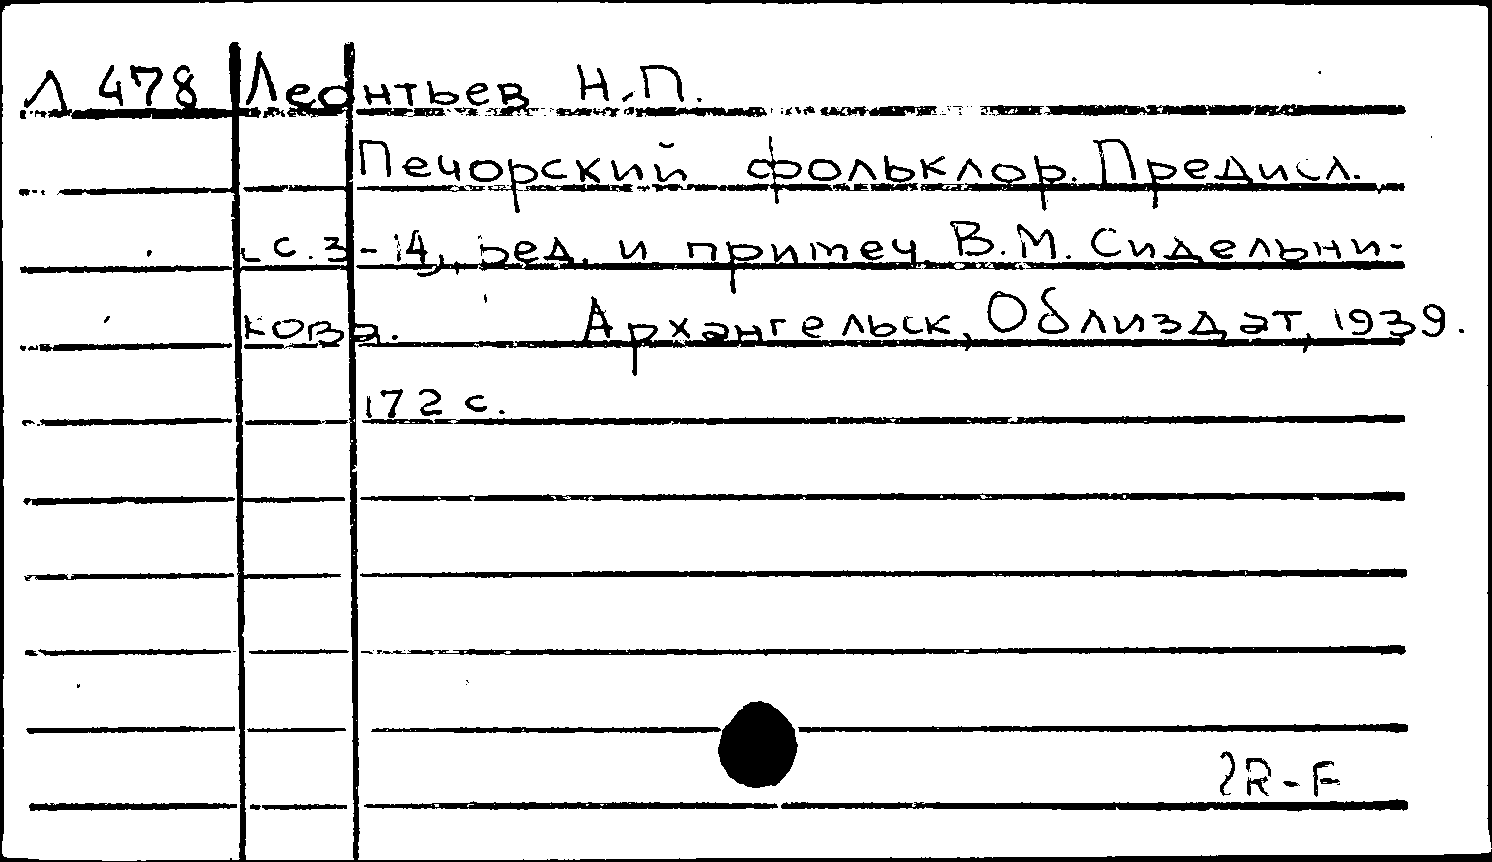 Л 478 Леонтьев Н.П.
Печорский фольклор. Предисл.
с. 3-14, ред. и примеч. В.М. Сидельни-
кова. Архангельск, Облиздат, 1939.
172 с.
R-F